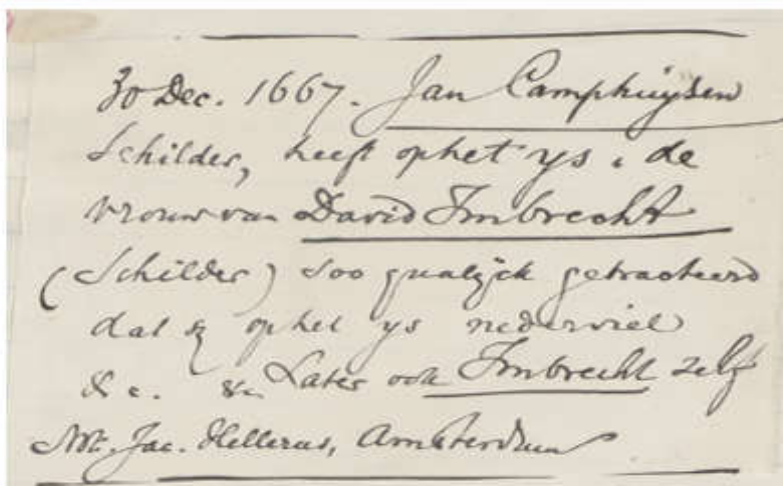 30 Dec. 1667. Jan Camphuysen
Schilder, heeft op het ys, de
vrouw van David Imbrecht
(Schilder) soo qualijck getracteerd
dat sy op het ys nederviel
&c. &c. Later ook Imbrecht zelf
Not. Jac. Hellerus, Amsterdam